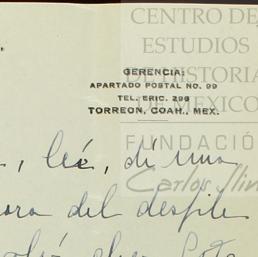 CENTRO DE
ESTUDIOS
DE HISTORIA
DE MEXICO
FUNDACIÓ
Carlos Slim
GERENCIA:
APARTADO POSTAL NO. 99
TEL. ERIC. 298
TORREON, COAH., MEX.
, leí, dí una
ora del desfile